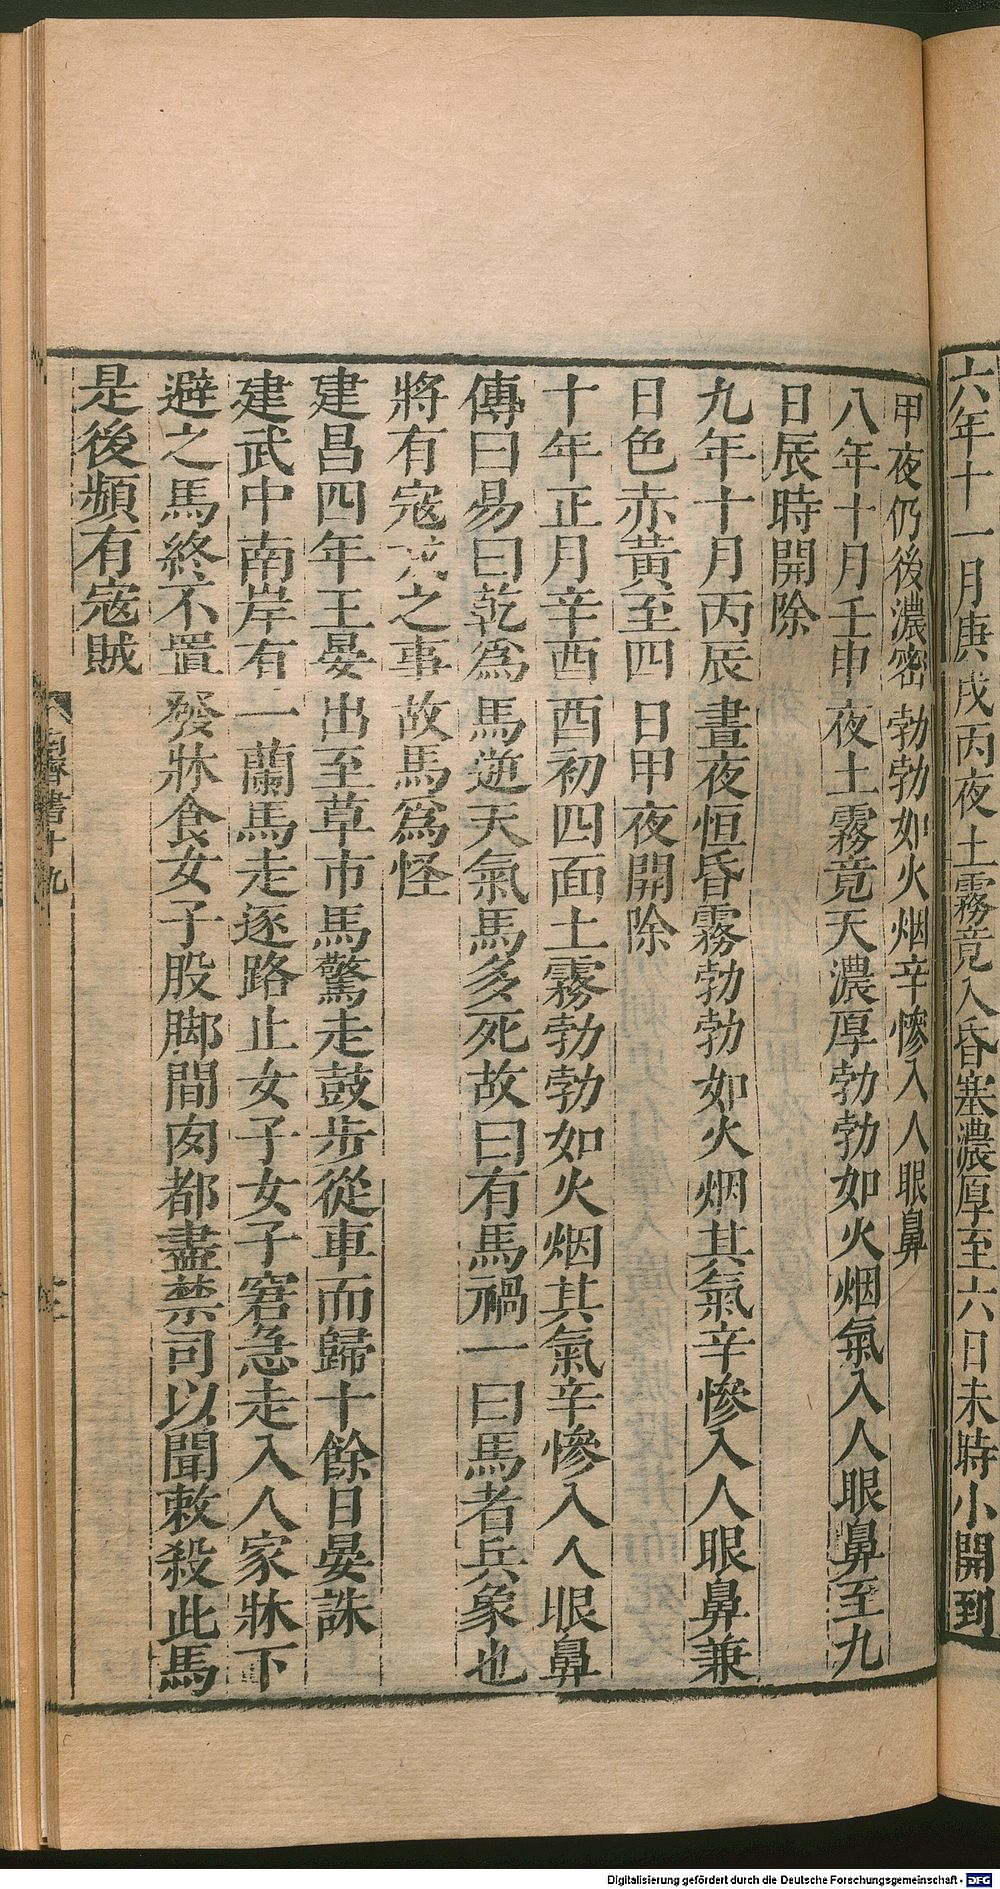 六年十一月庚戌丙夜土霧竟入昏塞濃厚至六日未時小開到
甲夜仍後濃密勃勃如火烟辛慘入人眼鼻
八年十月壬申夜土霧竟天濃厚勃勃如火烟氣入人眼鼻至九
日辰時開除
九年十月丙辰晝夜恒昏霧勃勃如火烟其氣辛慘入人眼鼻兼
日色赤黃至四日甲夜開除
十年正月辛酉酉初四面土霧勃勃如火烟其氣辛慘入人眼鼻
傳曰易曰乾爲馬逆天氣馬多死故曰有馬禍一曰馬者兵象也
將有寇戎之事故馬爲怪
建昌四年王晏出至草市馬驚走鼓步從車而歸十餘日晏誅
建武中南岸有一蘭馬走逐路止女子女子窘急走入人家牀下
避之馬終不置發牀食女子股脚間肉都盡禁司以聞敕殺此馬
是後頻有寇賊
南齊書十九
Digitalisierung gefördert durch die Deutsche Forschungsgemeinschaft - DFG